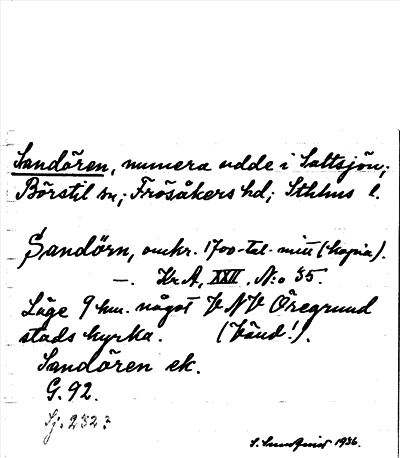 Sandören, numera udde i Saltsjön;
Börstil sn; Frösåkers hd; Sthlms l.
Sandörn, omkr. 1700-tal. mitt (kopia).
—. Kr A, XXII, N:o 35.
Läge 9 km. något V N V Öregrund
stads kyrka. (Vänd!).
Sandören ek.
G. 92.
Sj. 232
1936.